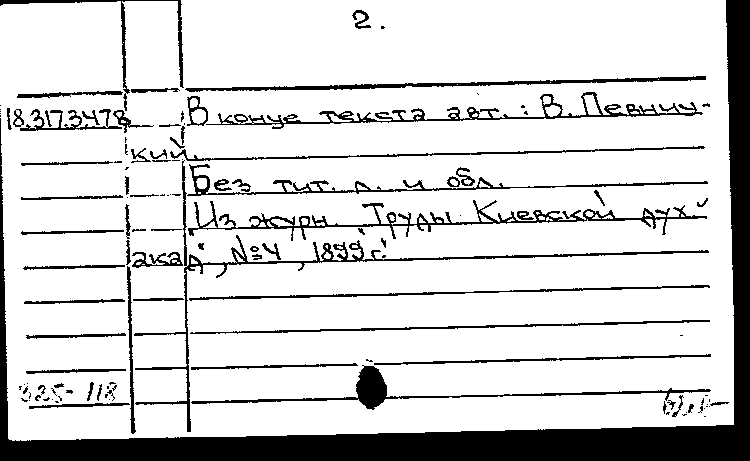 2.
18.317.3.478 В конце текста авт.: В. Певниц-
кий.
Без тит. л. и обл.
Из журн. "Труды Киевской дух.
акад", №4, 1899 г.
325-118